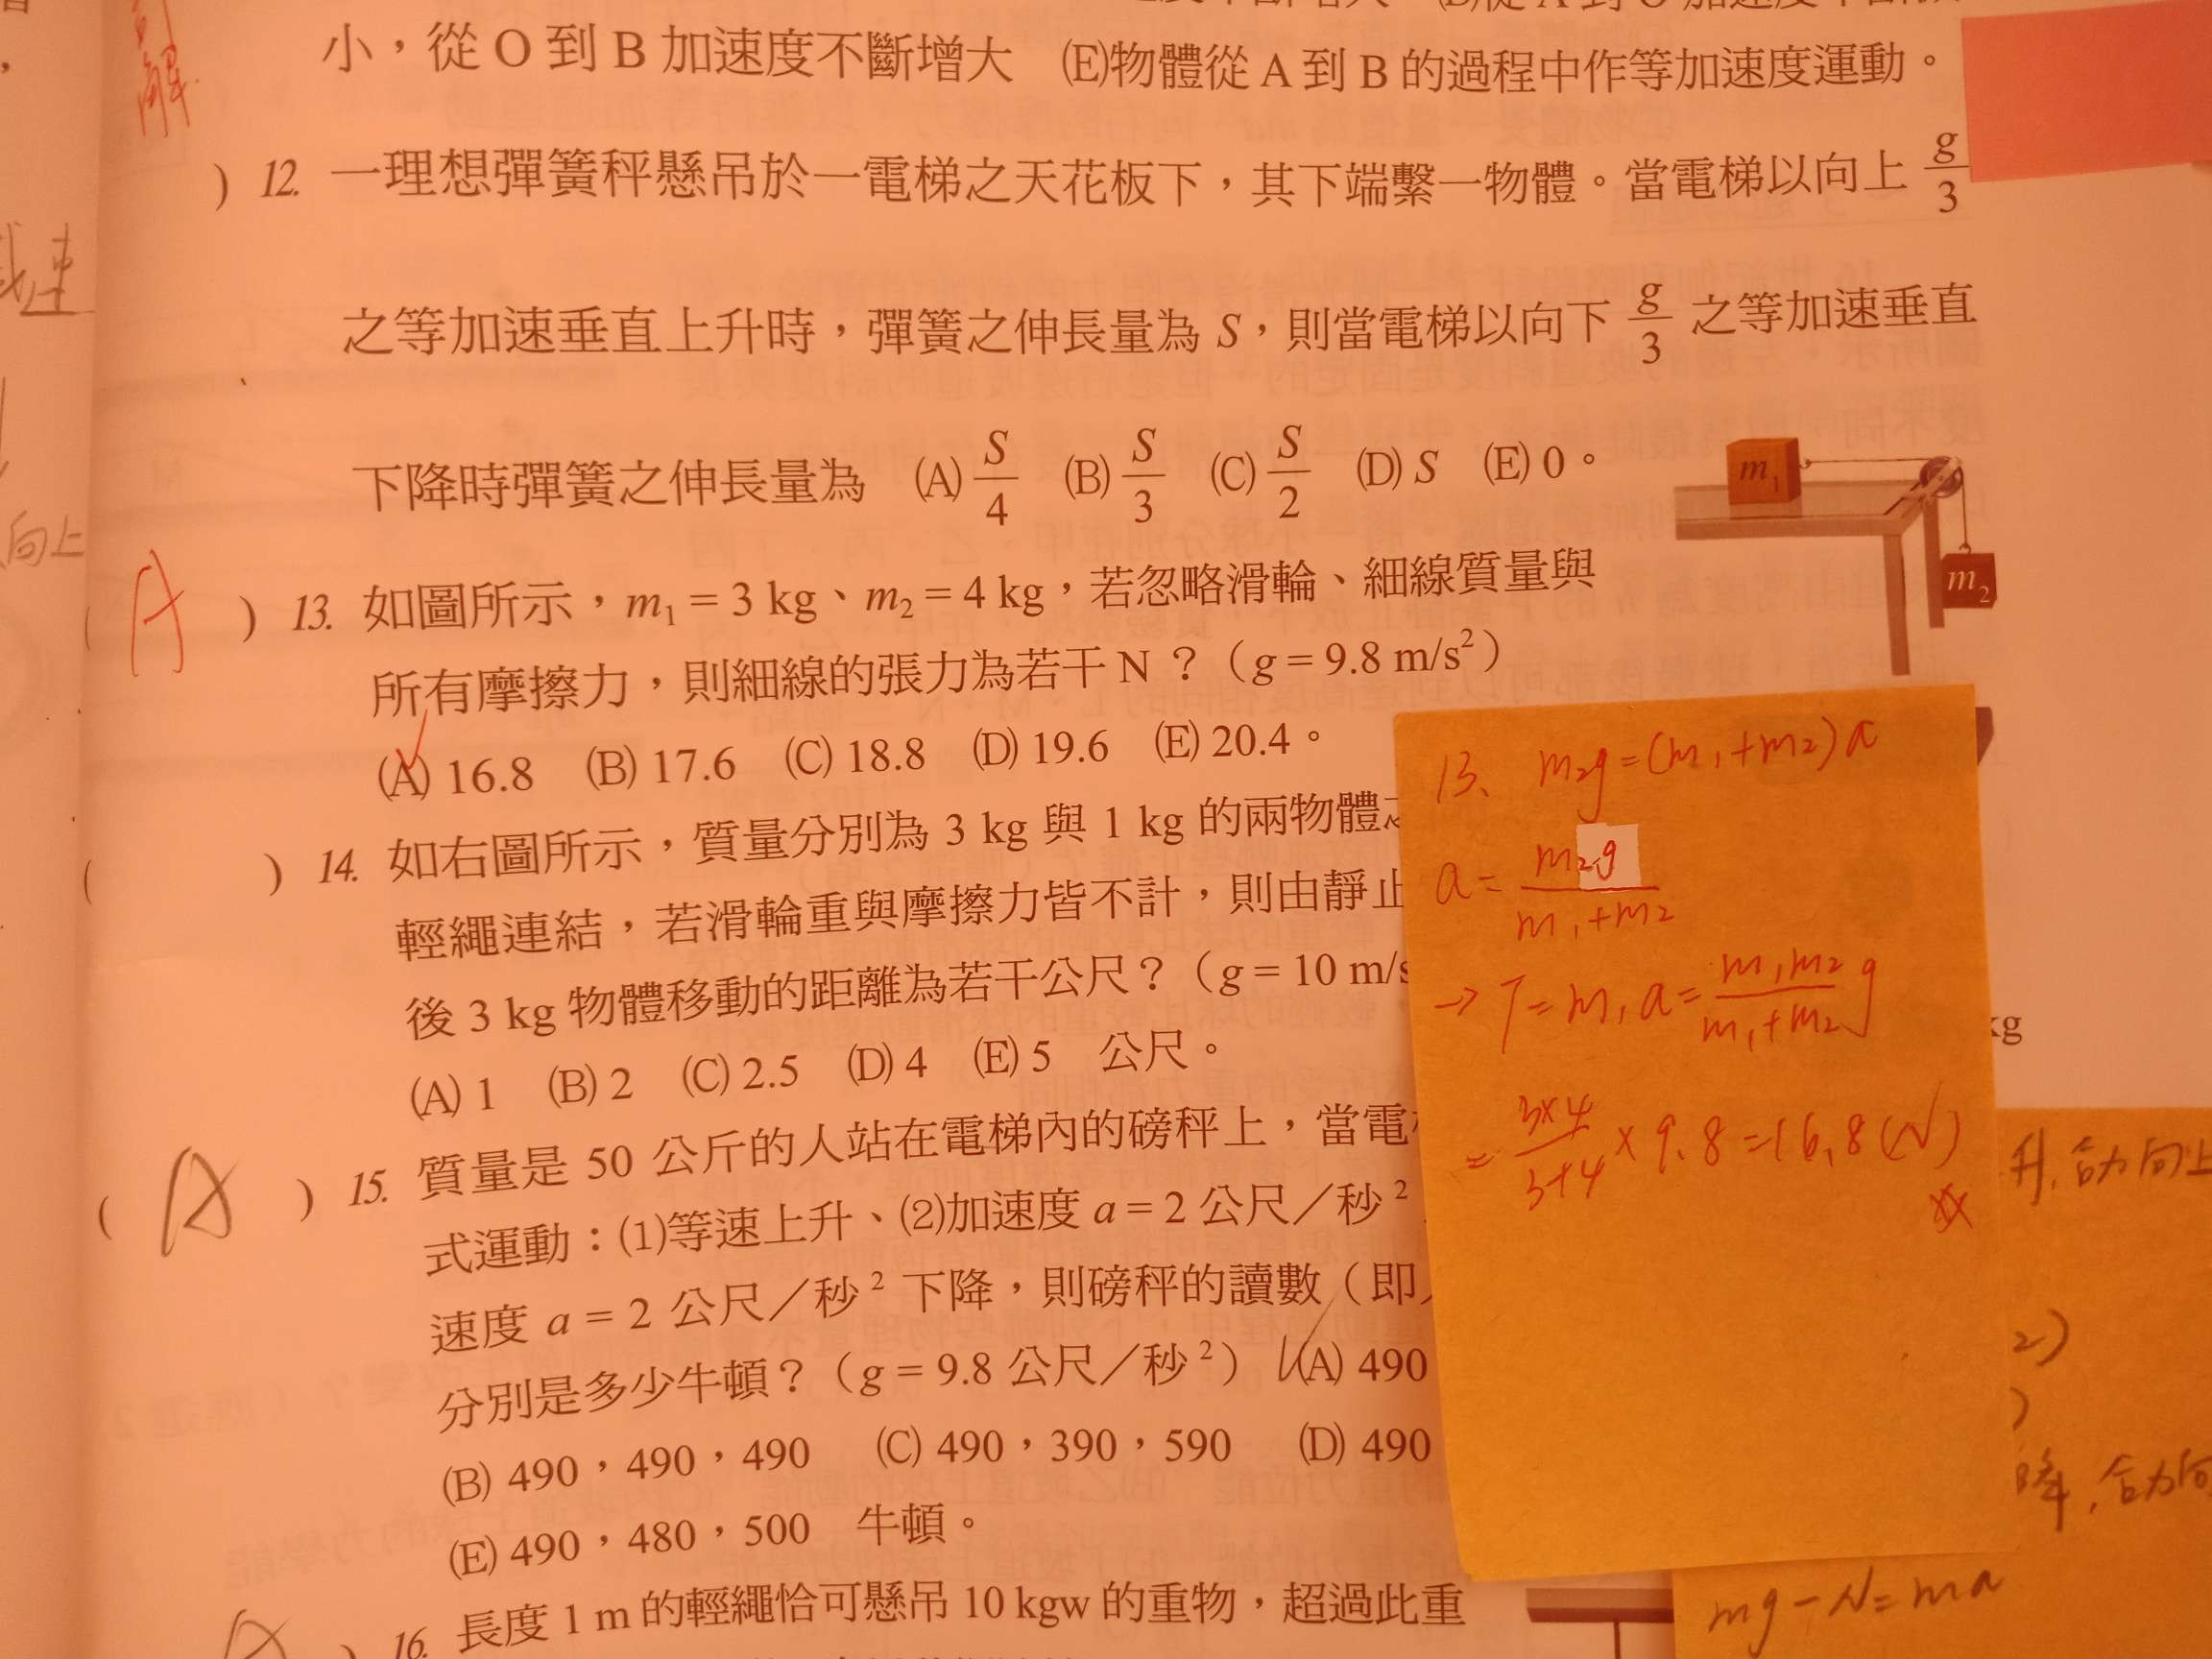 小，從 O 到 B 加速度不斷增大 (E)物體從 A 到 B 的過程中作等加速度運動。
解
) 12. 一理想彈簧秤懸吊於一電梯之天花板下，其下端繫一物體。當電梯以向上 g/3
之等加速垂直上升時，彈簧之伸長量為 S，則當電梯以向下 g/3 之等加速垂直
下降時彈簧之伸長量為 (A) S/4 (B) S/3 (C) S/2 (D) S (E) 0。
m₁
m₂
( A ) 13. 如圖所示，m₁ = 3 kg、m₂ = 4 kg，若忽略滑輪、細線質量與
所有摩擦力，則細線的張力為若干 N？（g = 9.8 m/s²）
(A) 16.8 (B) 17.6 (C) 18.8 (D) 19.6 (E) 20.4。
( ) 14. 如右圖所示，質量分別為 3 kg 與 1 kg 的兩物體
輕繩連結，若滑輪重與摩擦力皆不計，則由靜止
後 3 kg 物體移動的距離為若干公尺？（g = 10 m/s
(A) 1 (B) 2 (C) 2.5 (D) 4 (E) 5 公尺。
( A ) 15. 質量是 50 公斤的人站在電梯內的磅秤上，當電
式運動：(1)等速上升、(2)加速度 a = 2 公尺／秒²
速度 a = 2 公尺／秒² 下降，則磅秤的讀數（即
分別是多少牛頓？（g = 9.8 公尺／秒²） (A) 490
(B) 490，490，490 (C) 490，390，590 (D) 490
(E) 490，480，500 牛頓。
) 16. 長度 1 m 的輕繩恰可懸吊 10 kgw 的重物，超過此重
13、 m₂g=(m₁+m₂)a
a= m₂g/(m₁+m₂)
→ T=m₁a= m₁m₂/(m₁+m₂) g
= 3×4/(3+4) ×9.8=16.8(√)
kg
升，合力向上
2)
)
降，合力向
mg-N=ma
速
向上